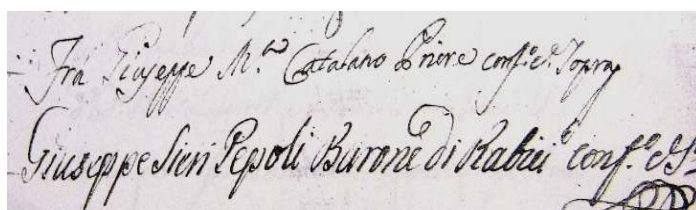 Fra Giuseppe M.a Catalano Priore conf.o e.s. Sopra
Giuseppe Sieri Pepoli Barone di Rabici conf.o e S.a